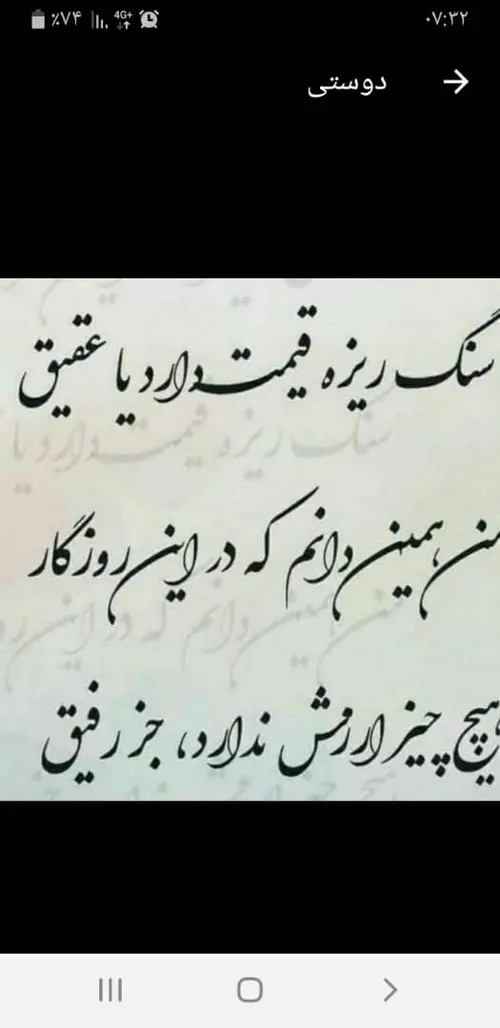 ٪۷۴ 4G+ ۰۷:۳۲
دوستی
سنگ ریزه قیمت دارد یا عقیق
من همین دانم که در این روزگار
هیچ چیز ارزش ندارد، جز رفیق